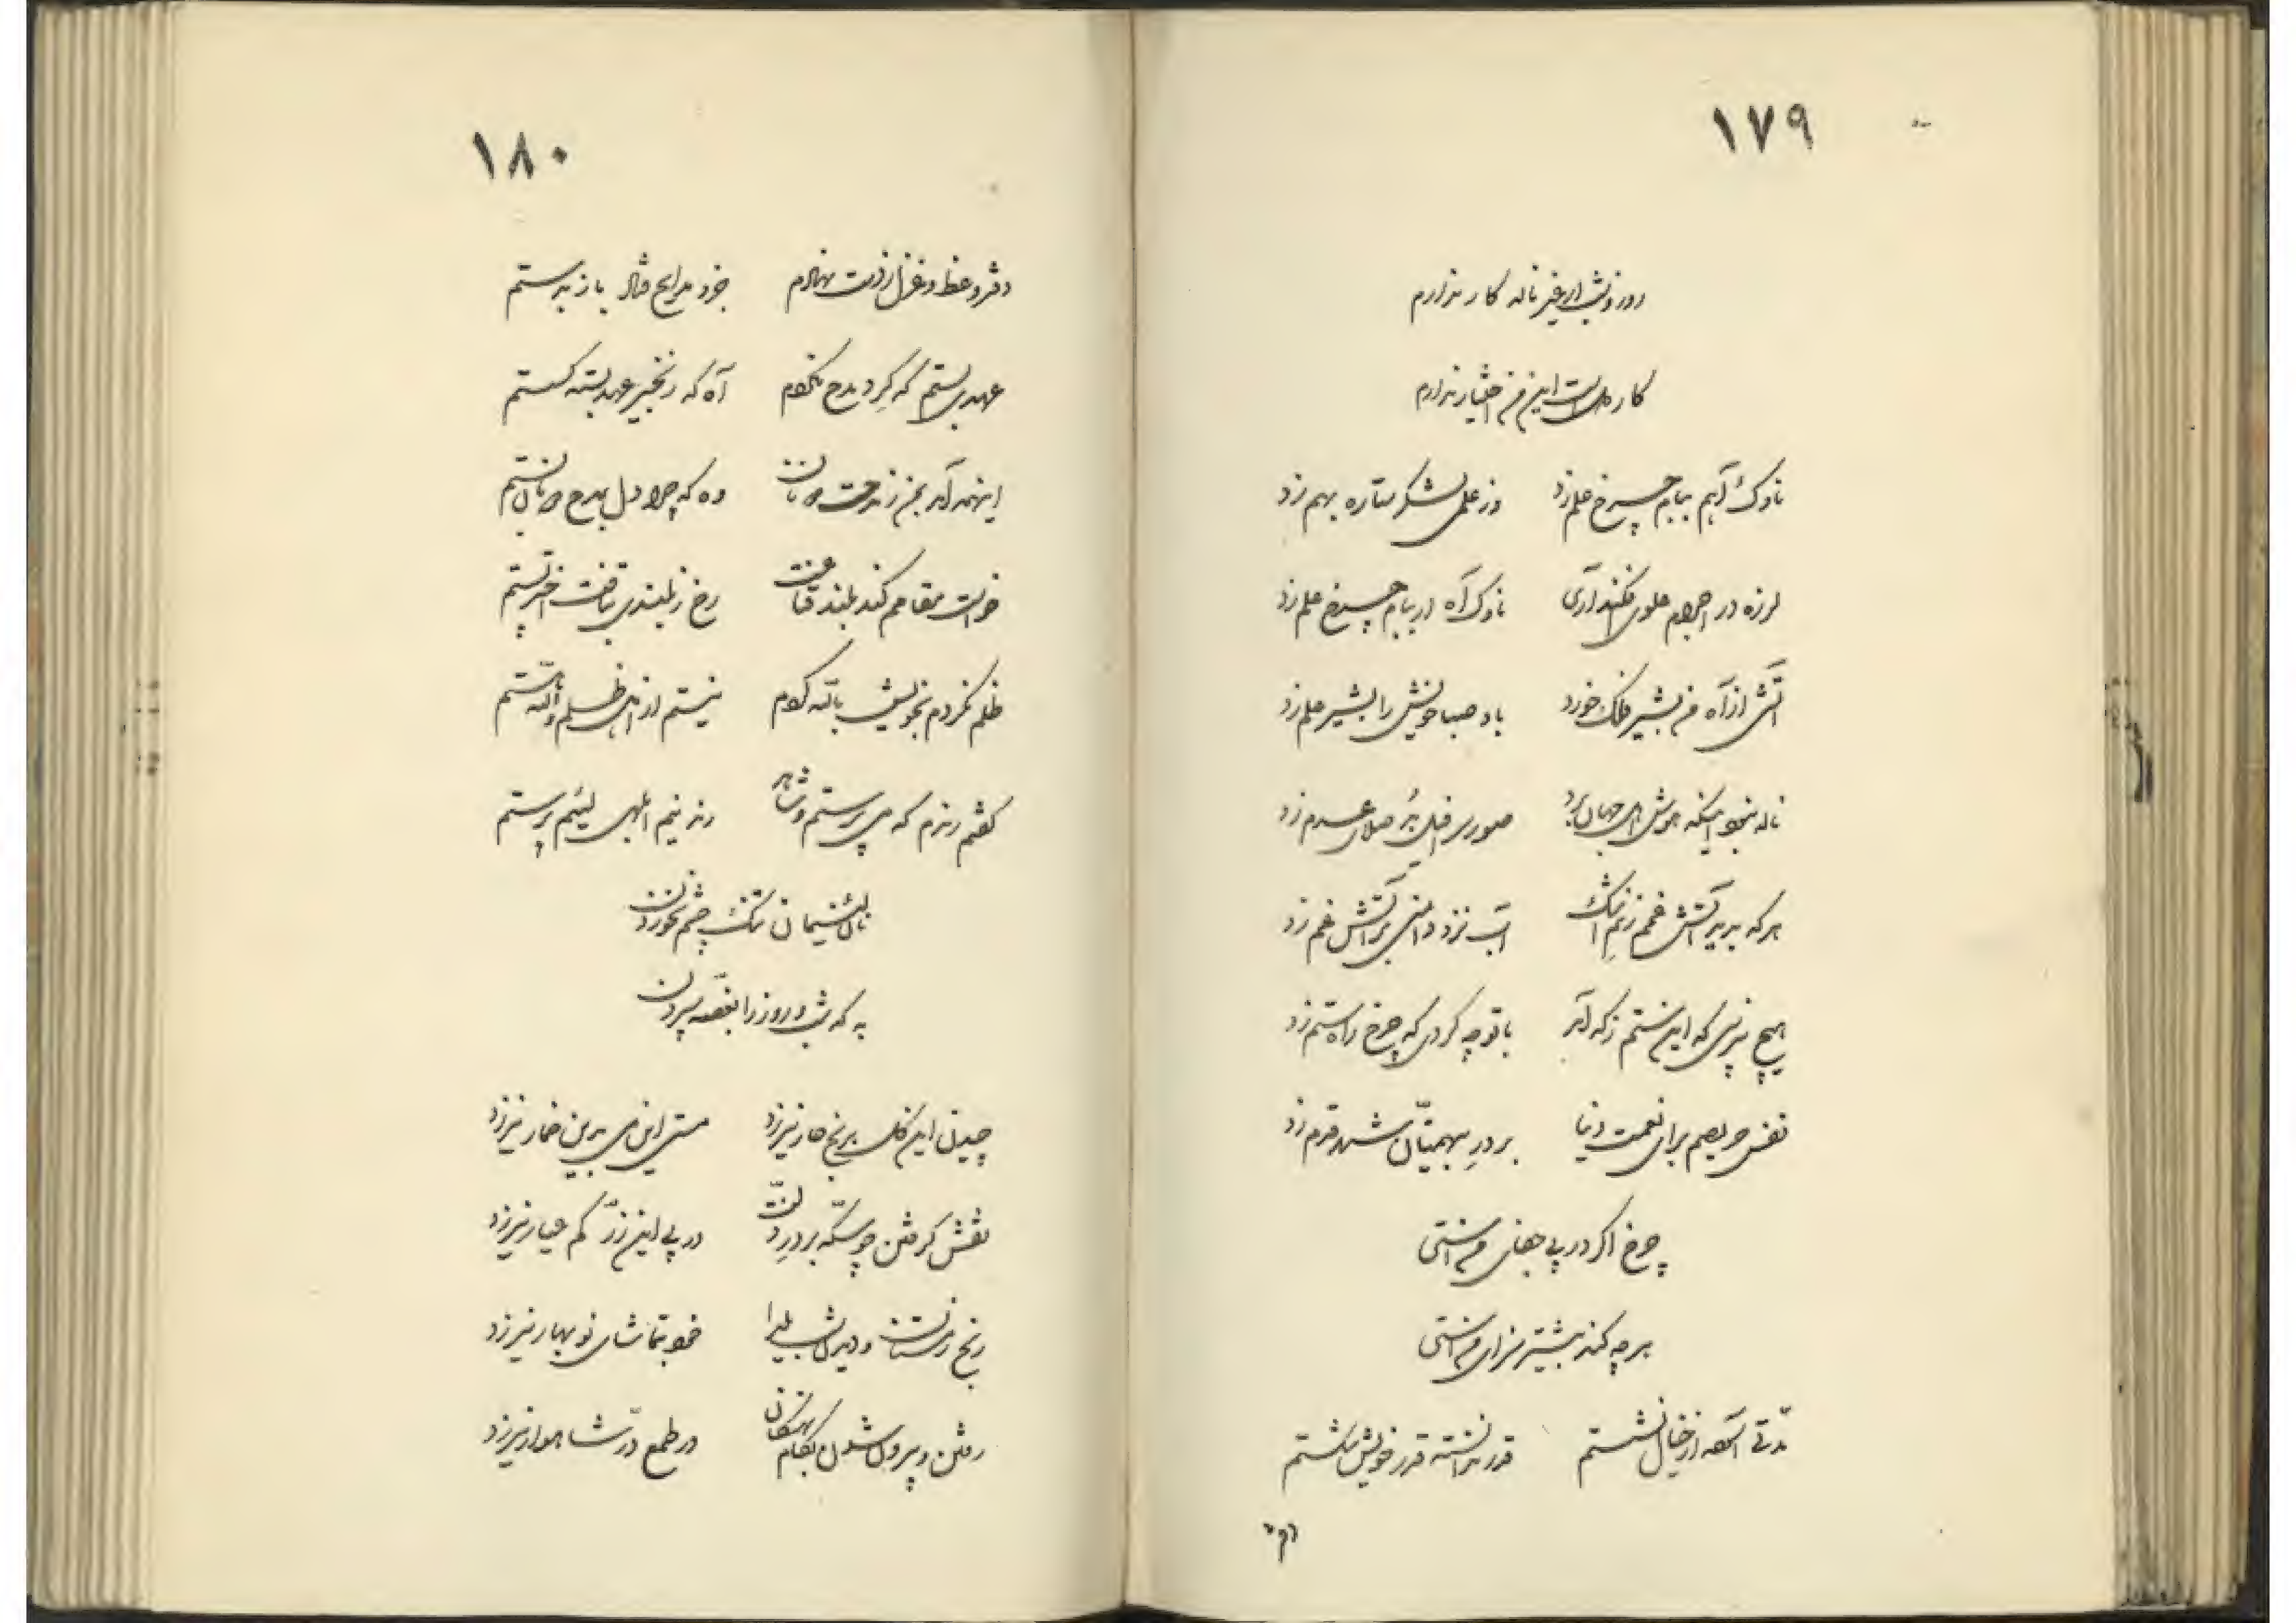 ۱۷۹
روز و شب ار غیر ناله کار ندارم
کار دلست این من اختیار ندارم
ناوک آهم ببام چرخ علم زد وز علمی لشکر ستاره بهم زد
لرزه در اجرام علوی فکند آری ناوک آه ار ببام چرخ علم زد
آتش از آه من بشیر فلک خورد باد صبا خویش را بشیر علم زد
ناله نیم اینکه هوش اهل جهان برد صور سرافیل بُد صلای عدم زد
هر که بدید آتش غمم ز نمِ اشک آب نزد دامنی بر آتش غم زد
هیچ نپرسی که این ستم ز که آمد با تو چه کردی که چرخ راه ستم زد
نفس حریصم برای نعمت دنیا بر درِ بیهمّتان سفله قدم زد
چرخ اگر در پی جفای منستی
هر چه کند بیشتر سزای منستی
مدّتی آسوده از خیال نشستم قدر ندانسته قدر خویش شکستم
دفتر
۱۸۰
دفتر وعظ و غزل ز دست نهادم خود مدایح مثال باز بدستم
عهد ببستم که گِرد مدح نگردم آه که زنجیر عهد بسته گسستم
اینهمه آمد بمن ز مدحت دونان وه که چرا دل بمدح دونان بستم
خواست مقامم کند بلند قناعت رخ ز بلندی بتافت اختر پستم
ظلم نکردم بخویش بالله کردم نیستم از اهل ظلم والله هستم
گفتم رندم که می پرستم و شاهد رند نیم ابلهی لئیم پرستم
نان لئیمان تنک چشم نخوردن
به که شب و روز را بغصّه سپردن
چیدن این گل برنج خار نیرزد مستی این می بدین خمار نیرزد
نقش گرفتن چو سکّه بر درِ دونان در پی این زرّ کم عیار نیرزد
رنج زمستان و دیدن شب یلدا خود بتماشای نوبهار نیرزد
رفتن و بیرون شدن بکام نهنگان در طمع دُرّ شاهوار نیرزد